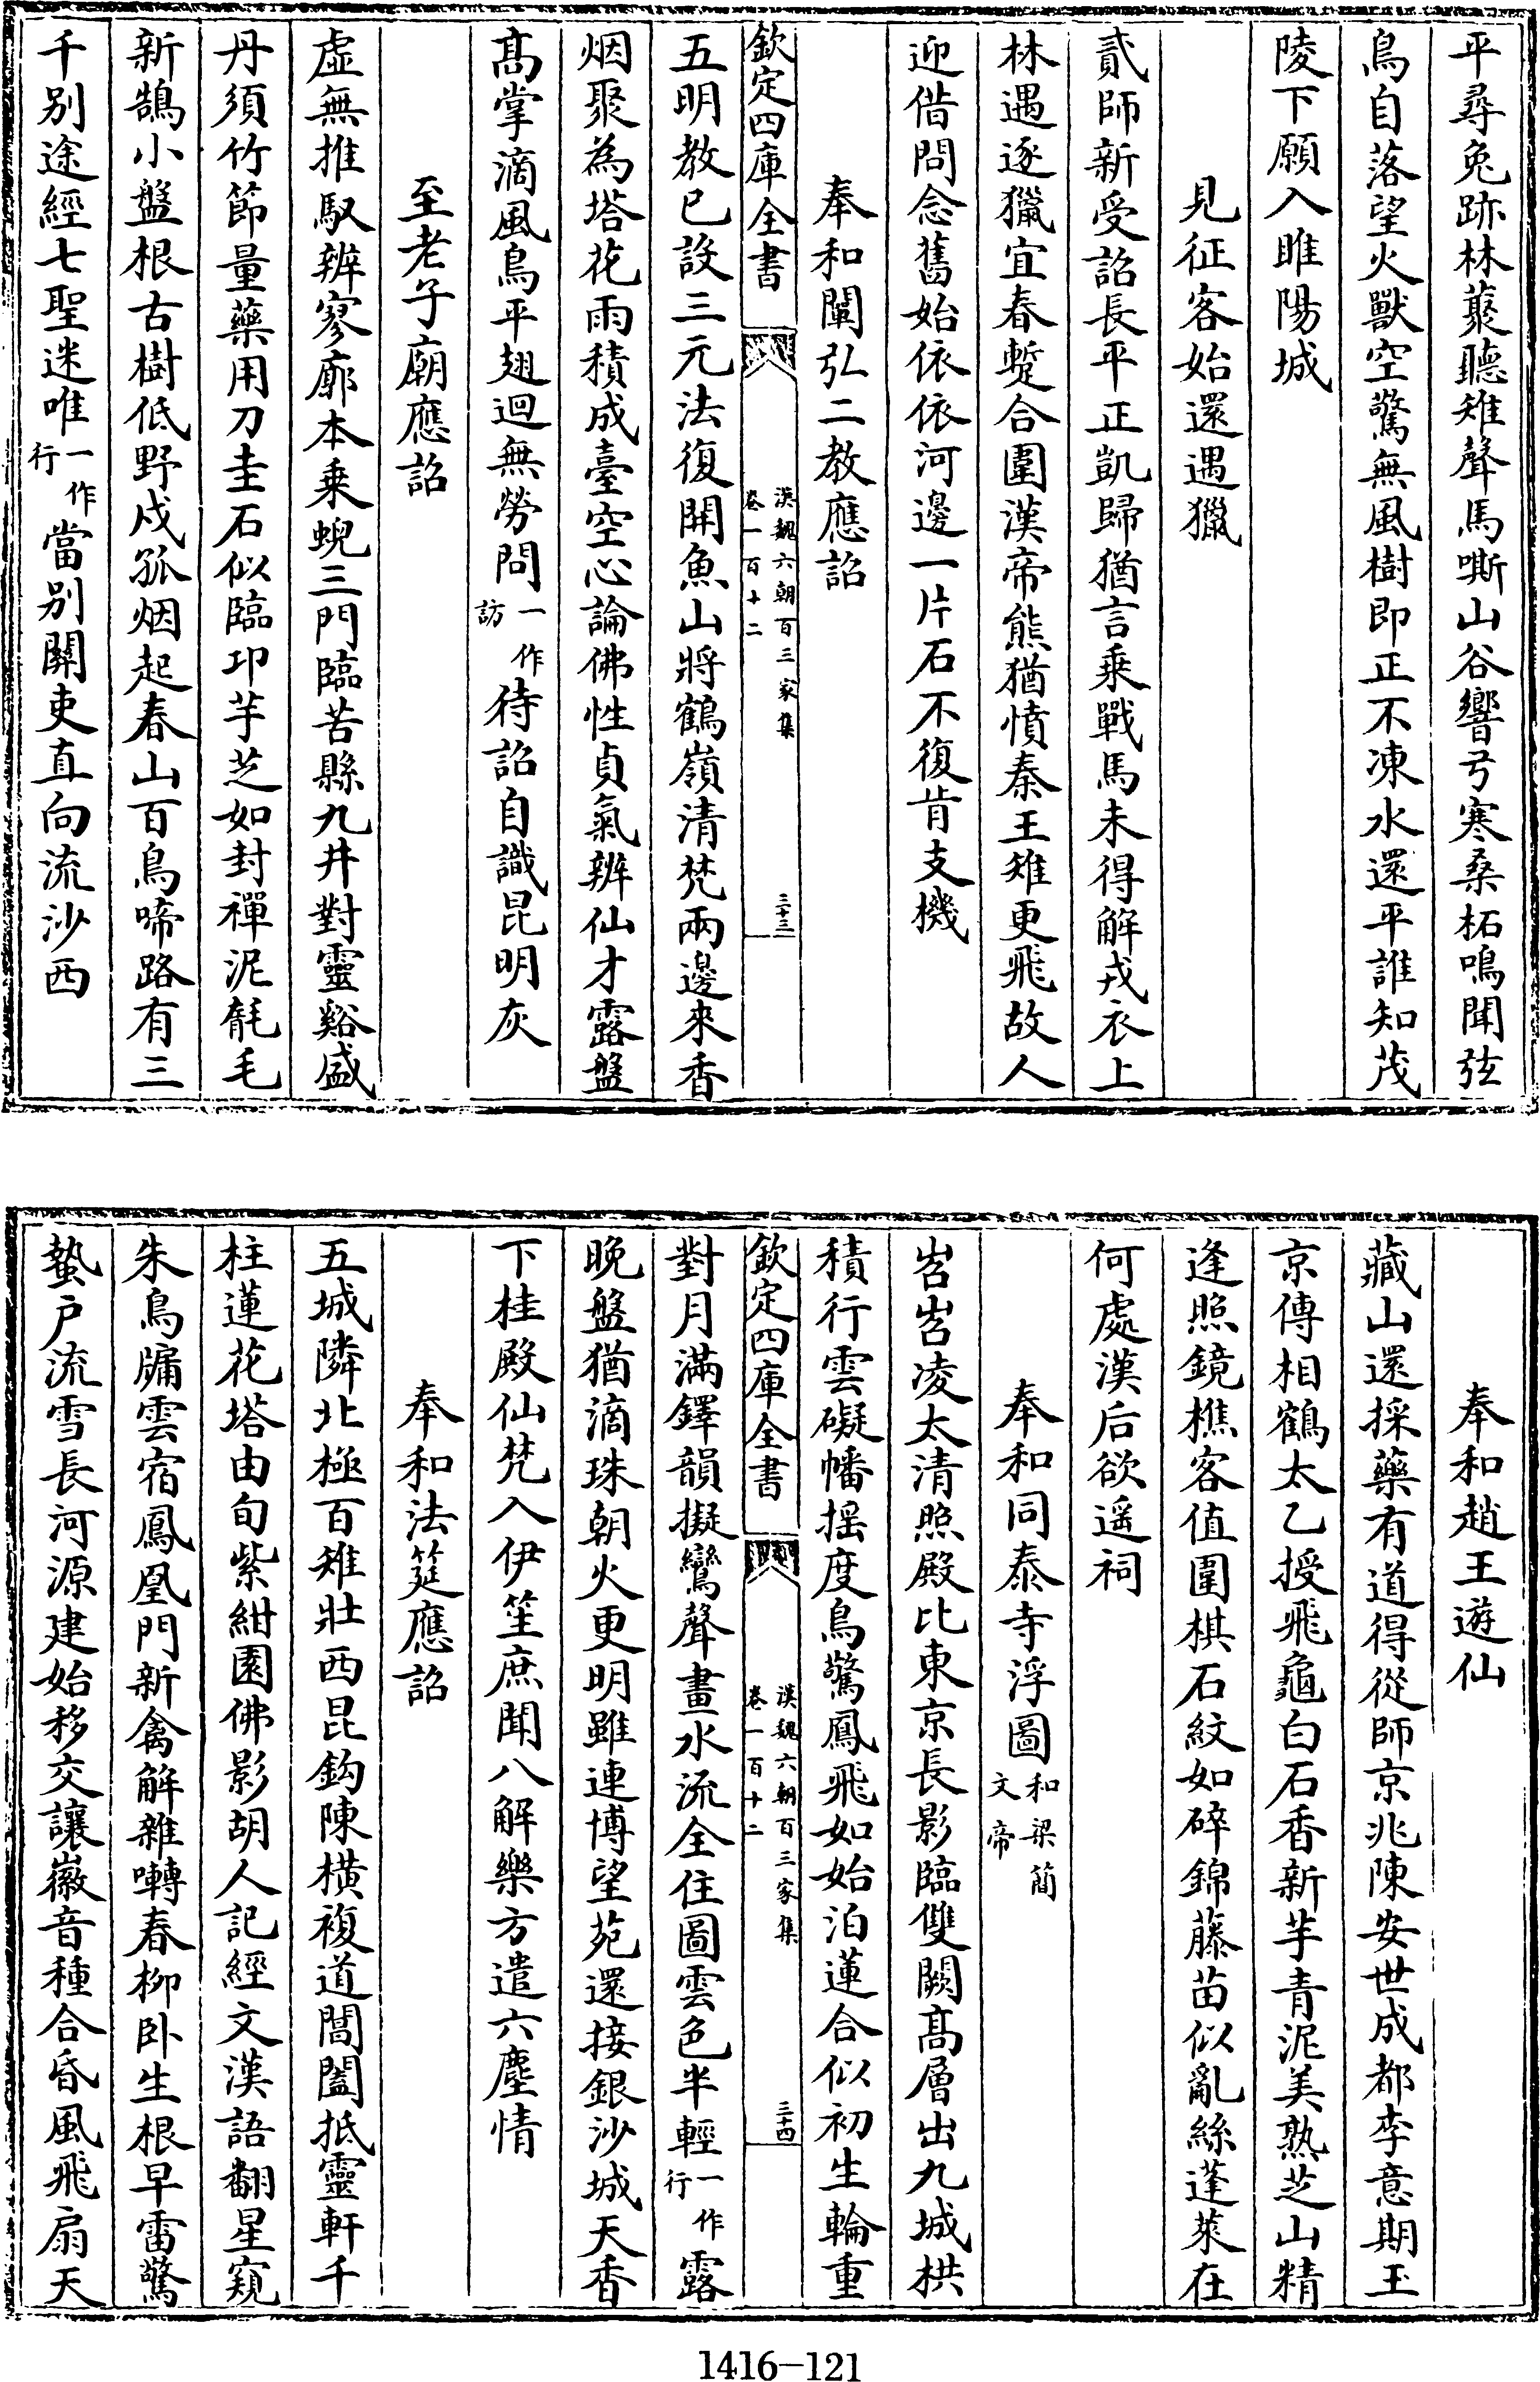 平尋兔跡林藂聽雉聲馬嘶山谷響弓寒桑柘鳴聞弦
鳥自落望火獸空驚無風樹即正不凍水還平誰知茂
陵下願入睢陽城
見征客始還遇獵
貳師新受詔長平正凱歸猶言乗戰馬未得解戎衣上
林遇逐獵宜春蹔合圍漢帝熊猶憤秦王雉更飛故人
迎借問念舊始依依河邊一片石不復肯支機
奉和闡弘二教應詔
欽定四庫全書
漢魏六朝百三家集
卷一百十二
三十三
五明教已設三元法復開魚山將鶴嶺清梵兩邊來香
烟聚為塔花雨積成臺空心論佛性貞氣辨仙才露盤
髙掌滴風鳥平翅迴無勞問一作訪待詔自識昆明灰
至老子廟應詔
虛無推馭辨寥廓本乗蜺三門臨苦縣九井對靈谿盛
丹須竹節量藥用刀圭石似臨卭芋芝如封禪泥毻毛
新鵠小盤根古樹低野戍孤烟起春山百鳥啼路有三
千别途經七聖迷唯一作行當别關吏直向流沙西
奉和趙王遊仙
藏山還採藥有道得從師京兆陳安世成都李意期玉
京傳相鶴太乙授飛龜白石香新芋青泥美熟芝山精
逢照鏡樵客值圍棋石紋如碎錦藤苗似亂絲蓬萊在
何處漢后欲遥祠
奉和同泰寺浮圖和梁簡文帝
岧岧凌太清照殿比東京長影臨雙闕髙層出九城栱
積行雲礙幡揺度鳥驚鳳飛如始泊蓮合似初生輪重
欽定四庫全書
漢魏六朝百三家集
卷一百十二
三十四
對月滿鐸韻擬鸞聲畫水流全住圖雲色半輕一作行露
晚盤猶滴珠朝火更明雖連博望苑還接銀沙城天香
下桂殿仙梵入伊笙庶聞八解樂方遣六塵情
奉和法筵應詔
五城隣北極百雉壯西昆鈎陳横複道閶闔抵靈軒千
柱蓮花塔由旬紫紺園佛影胡人記經文漢語翻星窺
朱鳥牖雲宿鳳凰門新禽解雜囀春柳卧生根早雷驚
蟄戸流雪長河源建始移交讓徽音種合昏風飛扇天
1416-121